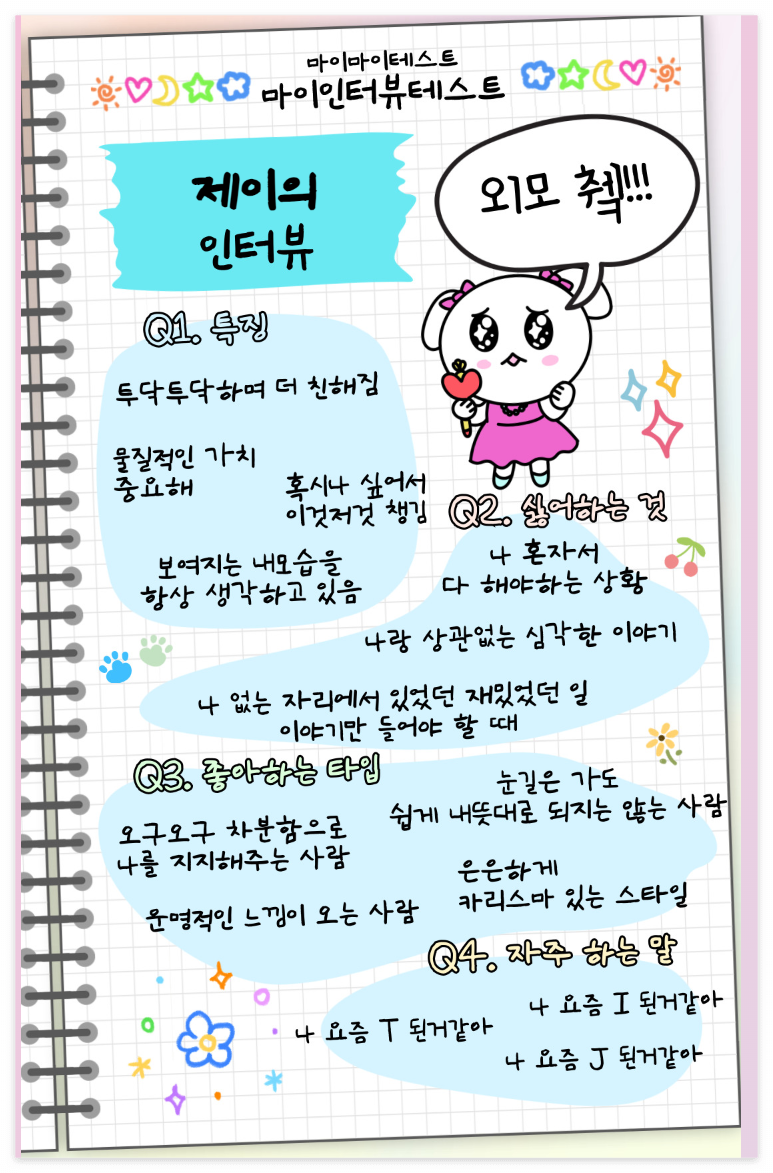 마이마이테스트
마이인터뷰테스트
제이의
인터뷰
외모 췍!!!
Q1. 특징
투닥투닥하며 더 친해짐
물질적인 가치
중요해
혹시나 싶어서
이것저것 챙김
보여지는 내모습을
항상 생각하고 있음
Q2. 싫어하는 것
나 혼자서
다 해야하는 상황
나랑 상관없는 심각한 이야기
나 없는 자리에서 있었던 재밌었던 일
이야기만 들어야 할 때
Q3. 좋아하는 타입
눈길은 가도
쉽게 내뜻대로 되지는 않는 사람
오구오구 차분함으로
나를 지지해주는 사람
은은하게
카리스마 있는 스타일
운명적인 느낌이 오는 사람
Q4. 자주 하는 말
나 요즘 I 된거같아
나 요즘 T 된거같아
나 요즘 J 된거같아